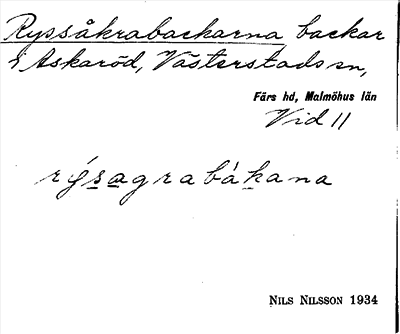 Ryssåkrabackarna backar
i Askaröd, Västerstads sn,
Färs hd, Malmöhus län
Vid 11
rýsagrabákana
NILS NILSSON 1934